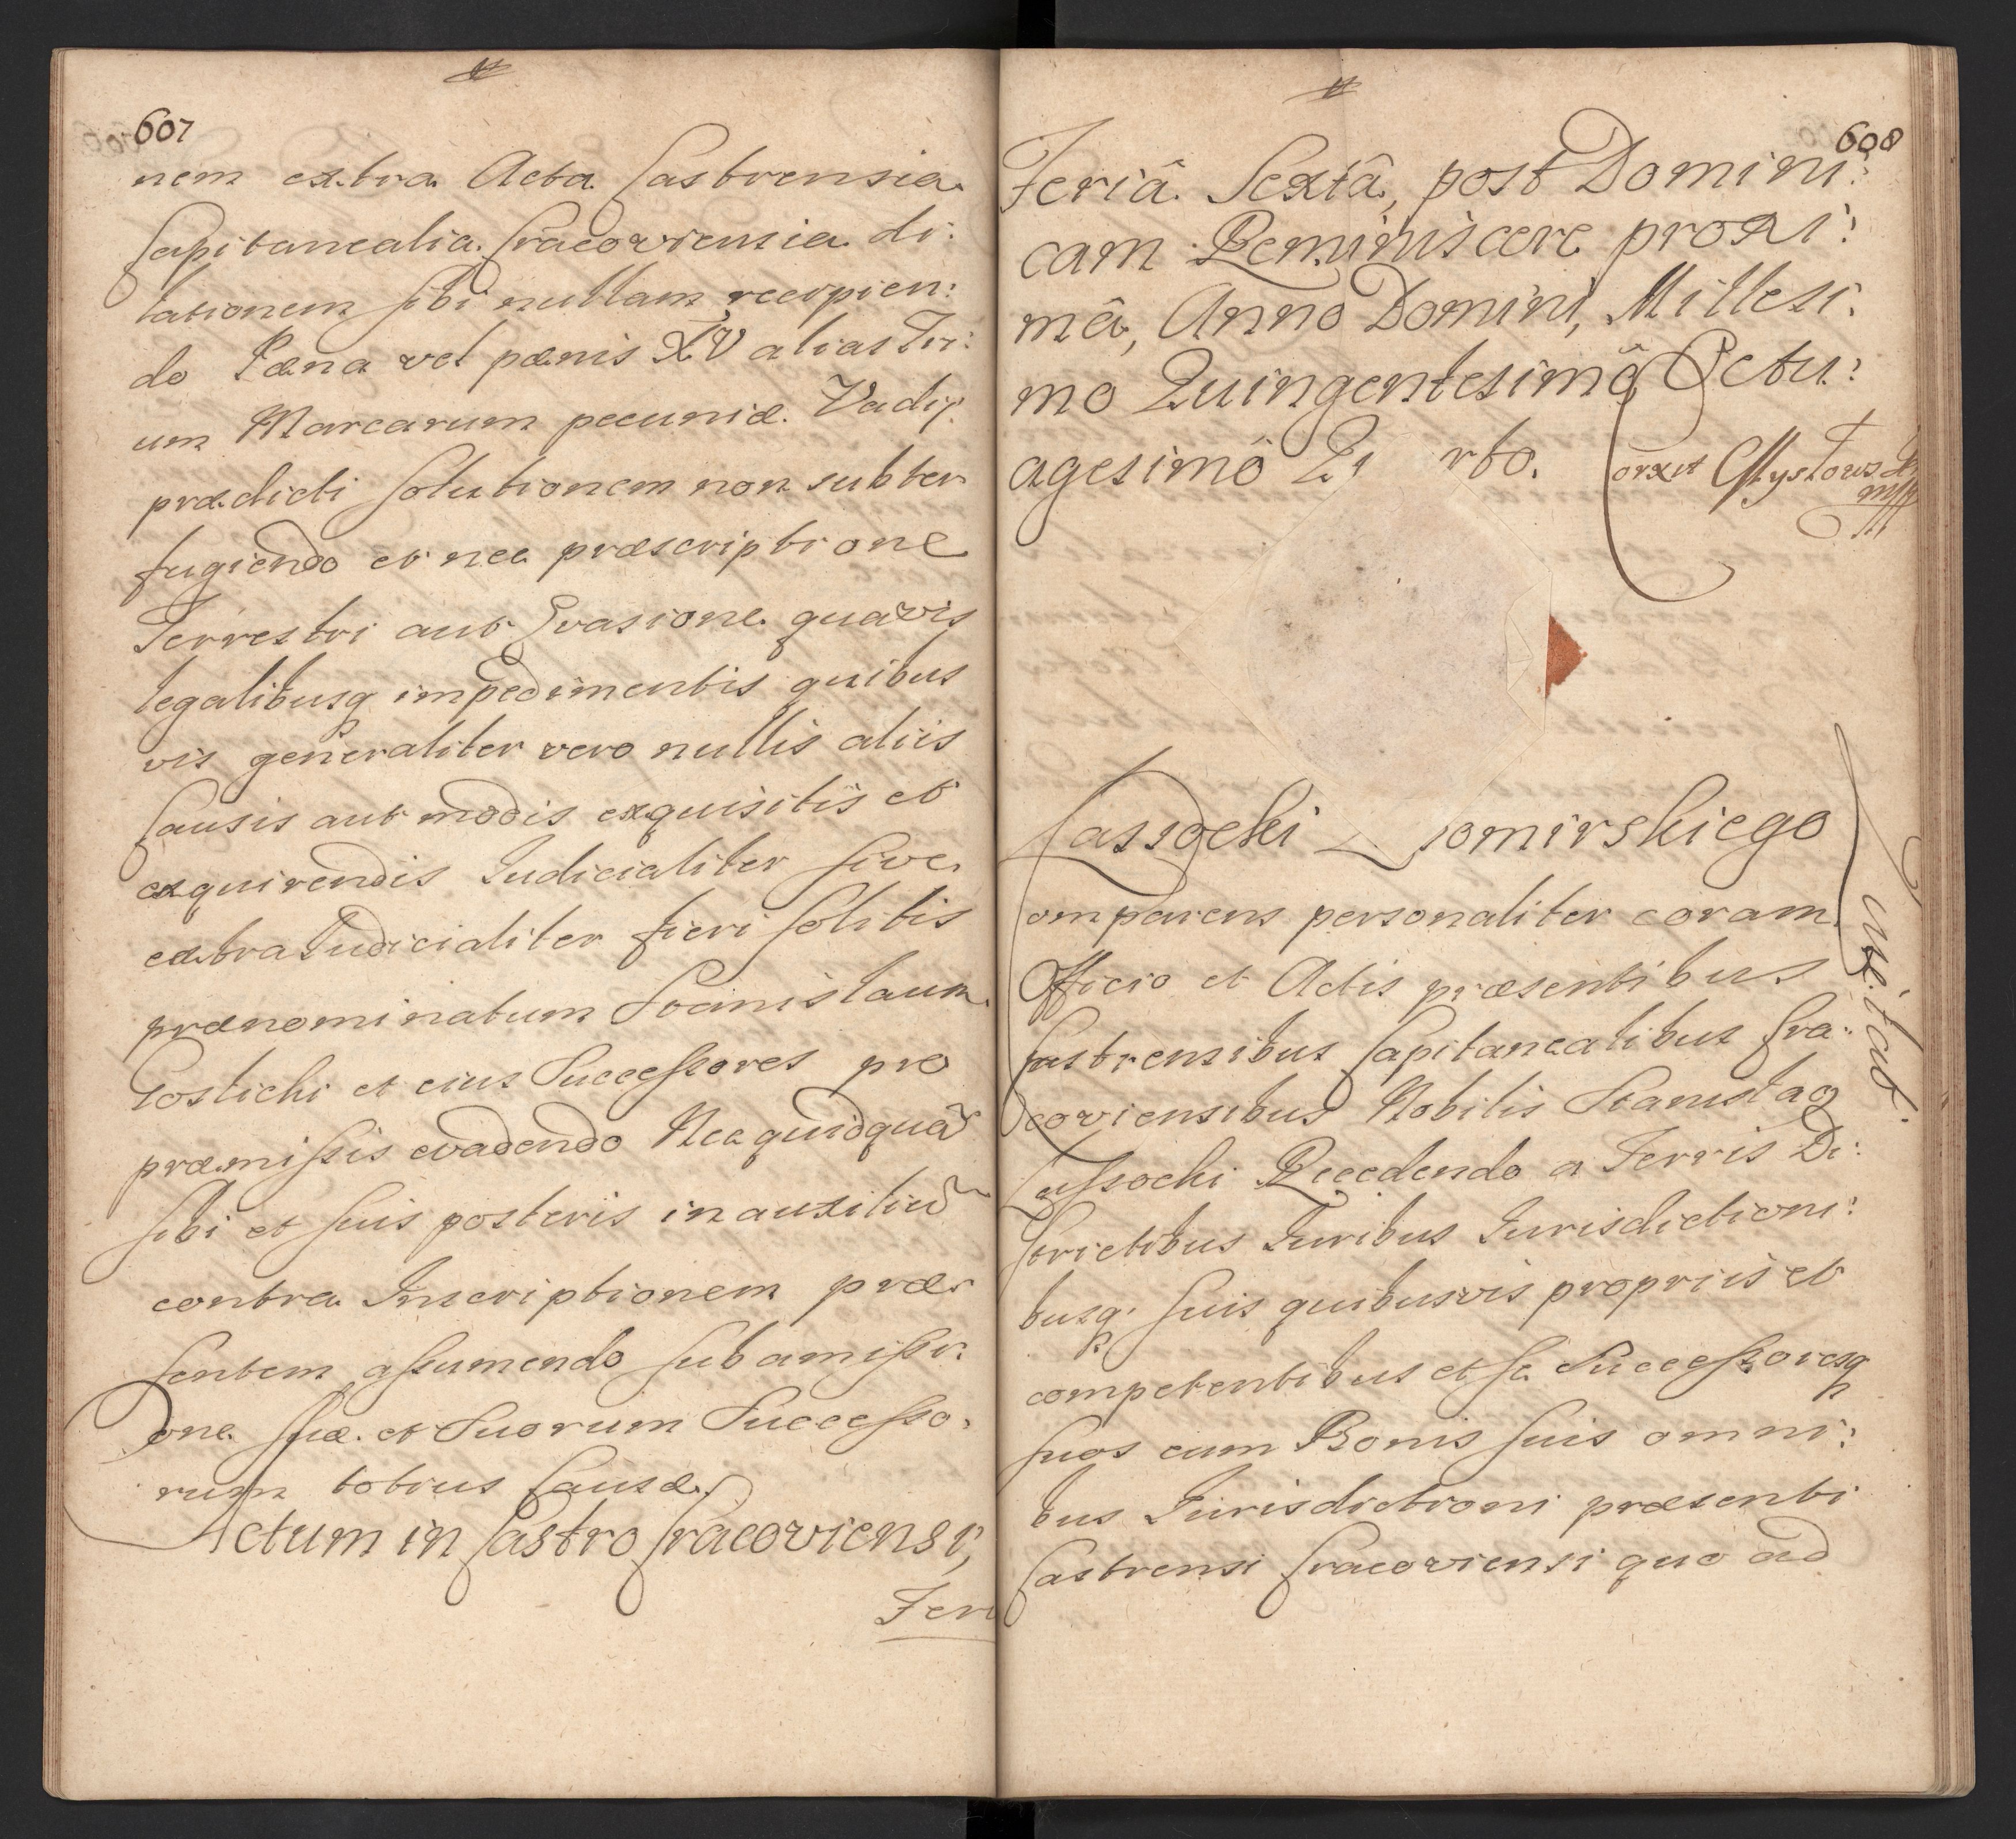 607
nem extra Acta Castrensia
Capitanealia Cracoviensia di:
lationem sibi nullam recipien:
do Pæna vel pænis XV alias Tri:
um Marcarum pecuniæ. Vadij.
prædicti solutionem non subter
fugiendo et nec præscriptione
Terrestri aut Evasione quavis
legalibusq impedimentis quibus
vis generaliter vero nullis aliis
Causis aut modis exquisitis et
exquirendis Iudicialiter sive
extraIudicialiter fieri solitis
prænominatum Stanislaum
Gostichi et eius Successores pro
præmissis evadendo Nec quidquã
sibi et suis posteris in auxiliũ
contra Inscriptionem præ:
sentem assumendo sub amissi:
one suæ et Suorum Successo:
rum totius Causæ.
Actum in Castro Cracoviensi,
Feri
608
Feriâ Sextâ, post Domini:
cam Reminiscere proxi:
mâ, Anno Domini, Millesi:
mo Quingentesimô Octu:
agesimô Qu rto.
Correxit
Lassochi omirskiego
Comparens personaliter coram
Officio et Actis præsentibus
Castrensibus Capitanealibus Cra:
coviensibus Nobilis Stanislaq
Lassochi Recedendo a Terris Di:
strictibus Iuribus Iurisdictioni:
busq suis quibusvis propriis et
competentibus et se Successoresq
suos cum Bonis suis omni:
bus Iurisdictioni præsenti
Castrensi Cracoviensi quo ad